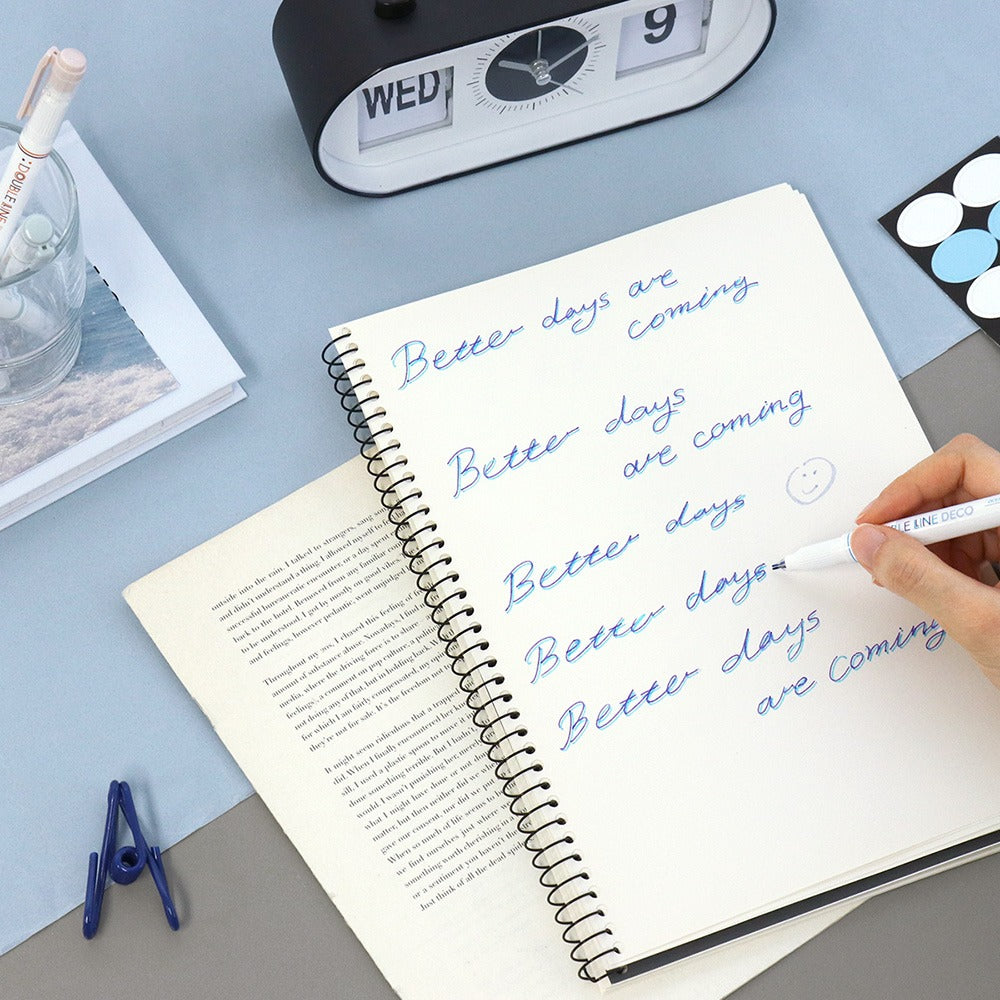 WED
9
DOUBLE LINE
Better days are
coming
Better days
are coming
Better days
Better days
Better days
are coming
LE LINE DECO
outside into the rain. I talked to strangers, sang
and didn't understand a thing. I allowed myself to
successful bureaucratic encounter, or a day spent
back to the hotel. Removed from my familiar
to be understood, I got by mostly on good
and feelings, however poetic, went unjudged
Throughout my 20s, I chased this feeling
amount of substance abuse. Nowadays, I find
media, where the driving force is to share
feelings, a comment on pop culture, a
not doing any of that, but in holding back. W
for which I am fairly compensated, my
they're not for sale. It's the freedom
It might seem ridiculous that a trapped
did. When I finally encountered her
sill, I used a plastic spoon to move it
done something terrible. But I hadn't,
would I wasn't punishing her, merely
what I might have done or not done
matter, but then neither did we wh
gave our consent, nor did we
When so much of life seems to
we find ourselves just where we
something worth cherishing in a
or a sentiment you haven't
Just think of all the dead